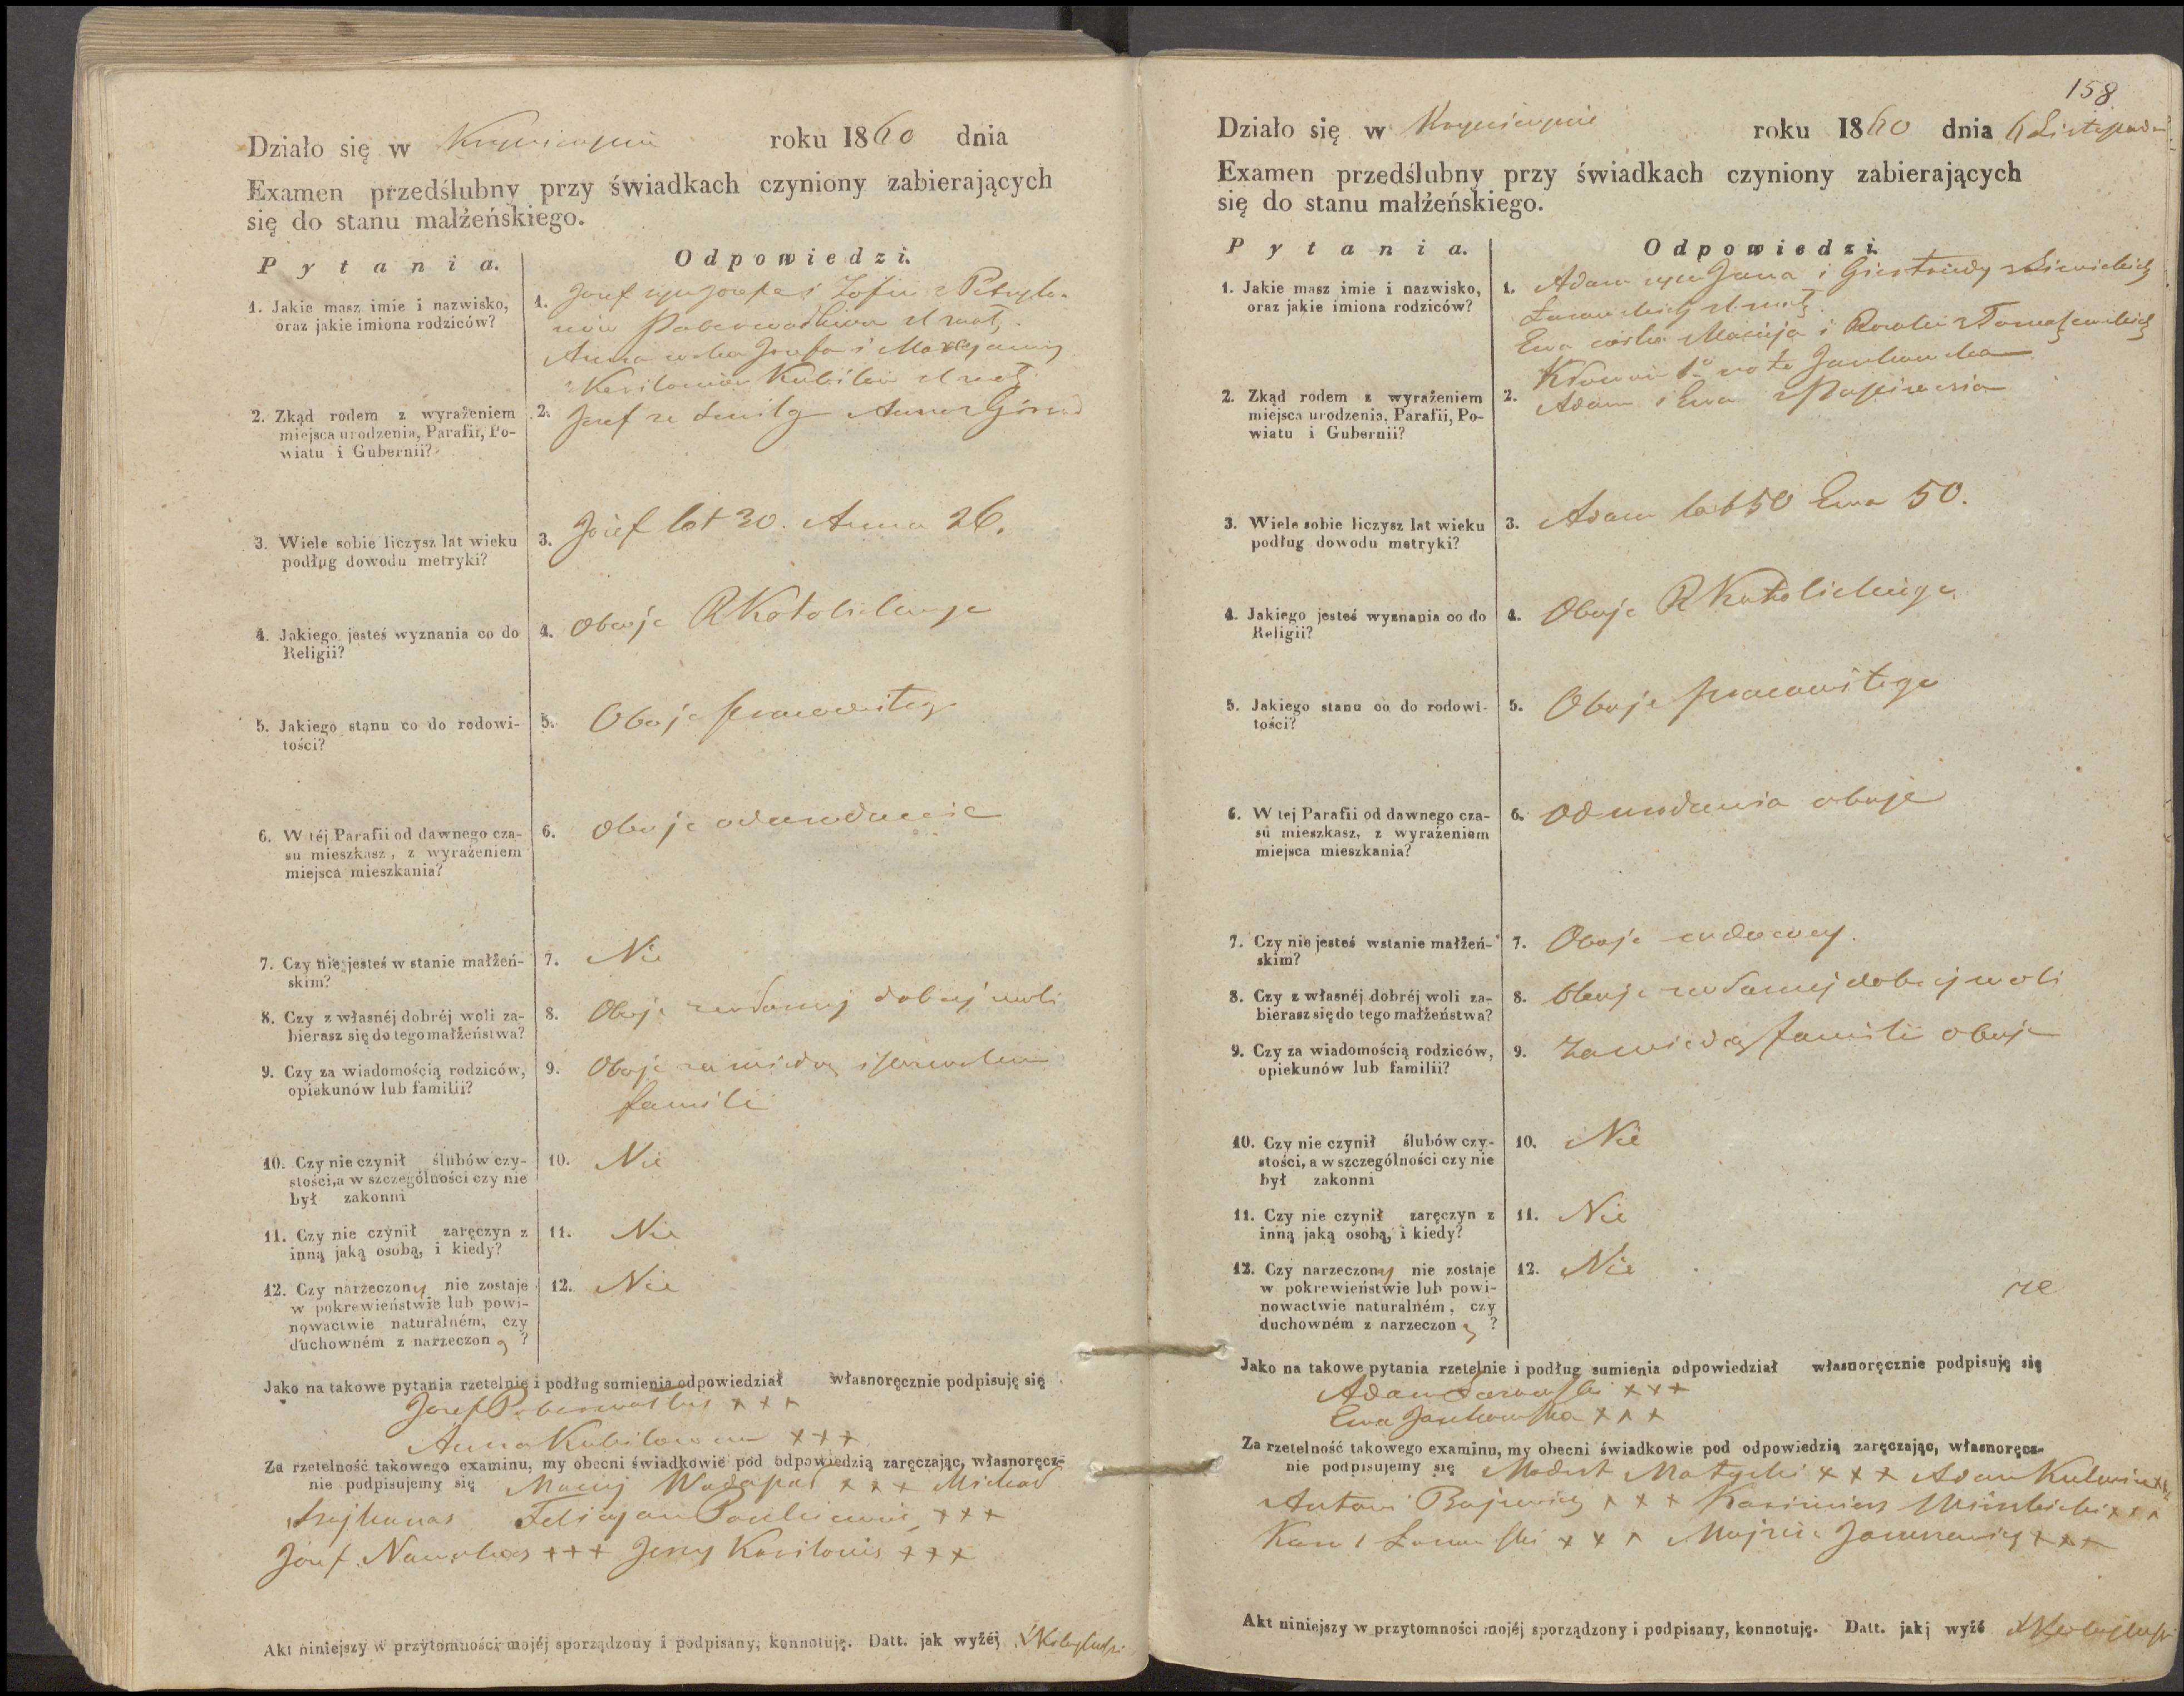 Działo się w roku 1860 dnia
Examen przedślubny przy świadkach czyniony zabierających
się do stanu małżeńskiego.
P y t a n i a.
O d p o w i e d z i.
1. Jakie masz imie i nazwisko,
oraz jakie imiona rodziców?
1. Josef syn Josefa i Zofii z
Anna córka Josefa i Maryanny
2. Zkąd rodem z wyrażeniem
miejsca urodzenia, Parafii, Po-
wiatu i Gubernii?
2. Josef ze Anna z
3. Wiele sobie liczysz lat wieku
podług dowodu metryki?
3. Józef lat 30. Anna 26.
4. Jakiego jesteś wyznania co do
Religii?
4. Oboje R Katolickiego
5. Jakiego stanu co do rodowi-
tości?
5. Oboje pracowitego
6. W téj Parafii od dawnego cza-
su mieszkasz, z wyrażeniem
miejsca mieszkania?
6. Oboje od urodzenia
7. Czy nie jesteś w stanie małżeń-
skim?
7. Nie
8. Czy z własnéj dobréj woli za-
bierasz się do tego małżeństwa?
8. Oboje dobrej woli
9. Czy za wiadomością rodziców,
opiekunów lub familii?
9. Oboje za wiedzą i
famili
10. Czy nie czynił ślubów czy-
stości, a w szczególności czy nie
był zakonni
10. Nie
11. Czy nie czynił zaręczyn z
inną jaką osobą, i kiedy?
11. Nie
12. Czy narzeczony nie zostaje
w pokrewieństwie lub powi-
nowactwie naturalném, czy
duchowném z narzeczoną ?
12. Nie
Jako na takowe pytania rzetelnie i podług sumienia odpowiedział własnoręcznie podpisuję się
Josef +++
Anna +++
Za rzetelność takowego examinu, my obecni świadkowie pod odpowiedzią zaręczając, własnoręcz-
nie podpisujemy się Maciej +++ Michał
Felicyan +++
Józef +++ Jerzy +++
Akt niniejszy w przytomności mojéj sporządzony i podpisany, konnotuję. Datt. jak wyżéj
158
Działo się w roku 1860 dnia 6 Listopada
Examen przedślubny przy świadkach czyniony zabierających
się do stanu małżeńskiego.
P y t a n i a.
O d p o w i e d z i.
1. Jakie masz imie i nazwisko,
oraz jakie imiona rodziców?
1. Adam syn Jana i
Ewa córka Macieja i
Jankowska
2. Zkąd rodem z wyrażeniem
miejsca urodzenia, Parafii, Po-
wiatu i Gubernii?
2. Adam i Ewa z
3. Wiele sobie liczysz lat wieku
podług dowodu metryki?
3. Adam lat 50 Ewa 50.
4. Jakiego jesteś wyznania co do
Religii?
4. Oboje R Katolickiego
5. Jakiego stanu co do rodowi-
tości?
5. Oboje pracowitego
6. W tej Parafii od dawnego cza-
su mieszkasz, z wyrażeniem
miejsca mieszkania?
6. Od urodzenia oboje
7. Czy nie jesteś wstanie małżeń-
skim?
7. Oboje wdowcy.
8. Czy z własnéj dobréj woli za-
bierasz się do tego małżeństwa?
8. Oboje dobrej woli
9. Czy za wiadomością rodziców,
opiekunów lub familii?
9. Za wiedzą familii oboje
10. Czy nie czynił ślubów czy-
stości, a w szczególności czy nie
był zakonni
10. Nie
11. Czy nie czynił zaręczyn z
inną jaką osobą, i kiedy?
11. Nie
12. Czy narzeczony nie zostaje
w pokrewieństwie lub powi-
nowactwie naturalném, czy
duchowném z narzeczoną ?
12. Nie
Jako na takowe pytania rzetelnie i podług sumienia odpowiedział własnoręcznie podpisuję się
Adam +++
Ewa Jankowska +++
Za rzetelność takowego examinu, my obecni świadkowie pod odpowiedzią zaręczając, własnoręcz-
nie podpisujemy się Modest +++ Adam
Antoni +++ Kazimierz +++
+++ +++
Akt niniejszy w przytomności mojéj sporządzony i podpisany, konnotuję. Datt. jakj wyżé